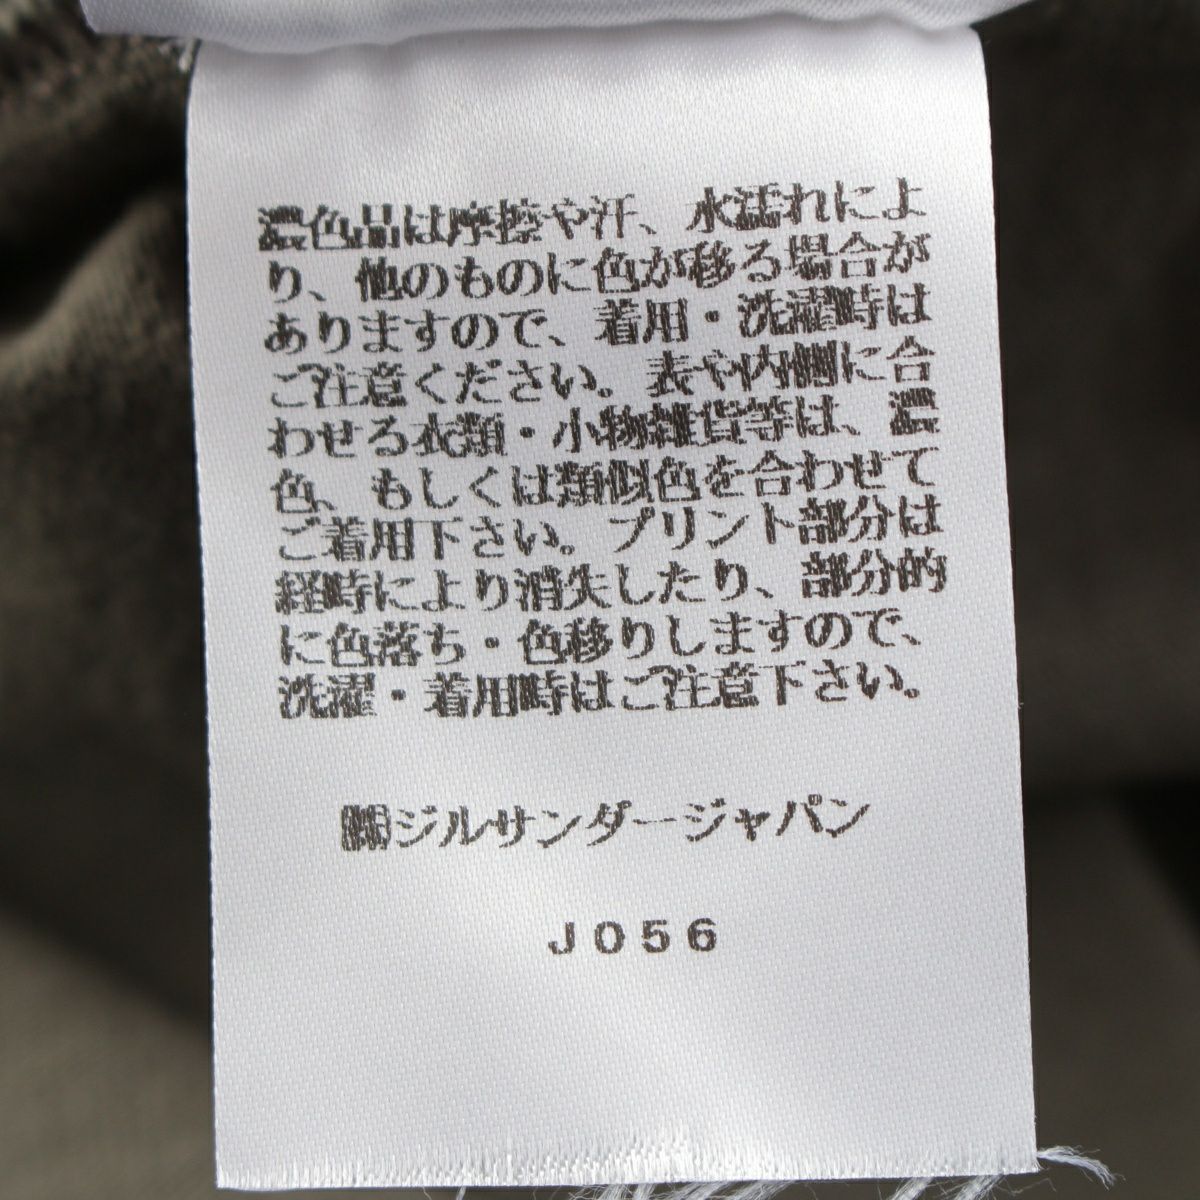 濃色品は摩擦や汗、水濡れによ
り、他のものに色が移る場合が
ありますので、着用・洗濯時は
ご注意ください。表や内側に合
わせる衣類・小物雑貨等は、濃
色、もしくは類似色を合わせて
ご着用下さい。プリント部分は
経時により消失したり、部分的
に色落ち・色移りしますので、
洗濯・着用時はご注意下さい。
㈱ジルサンダージャパン
J056